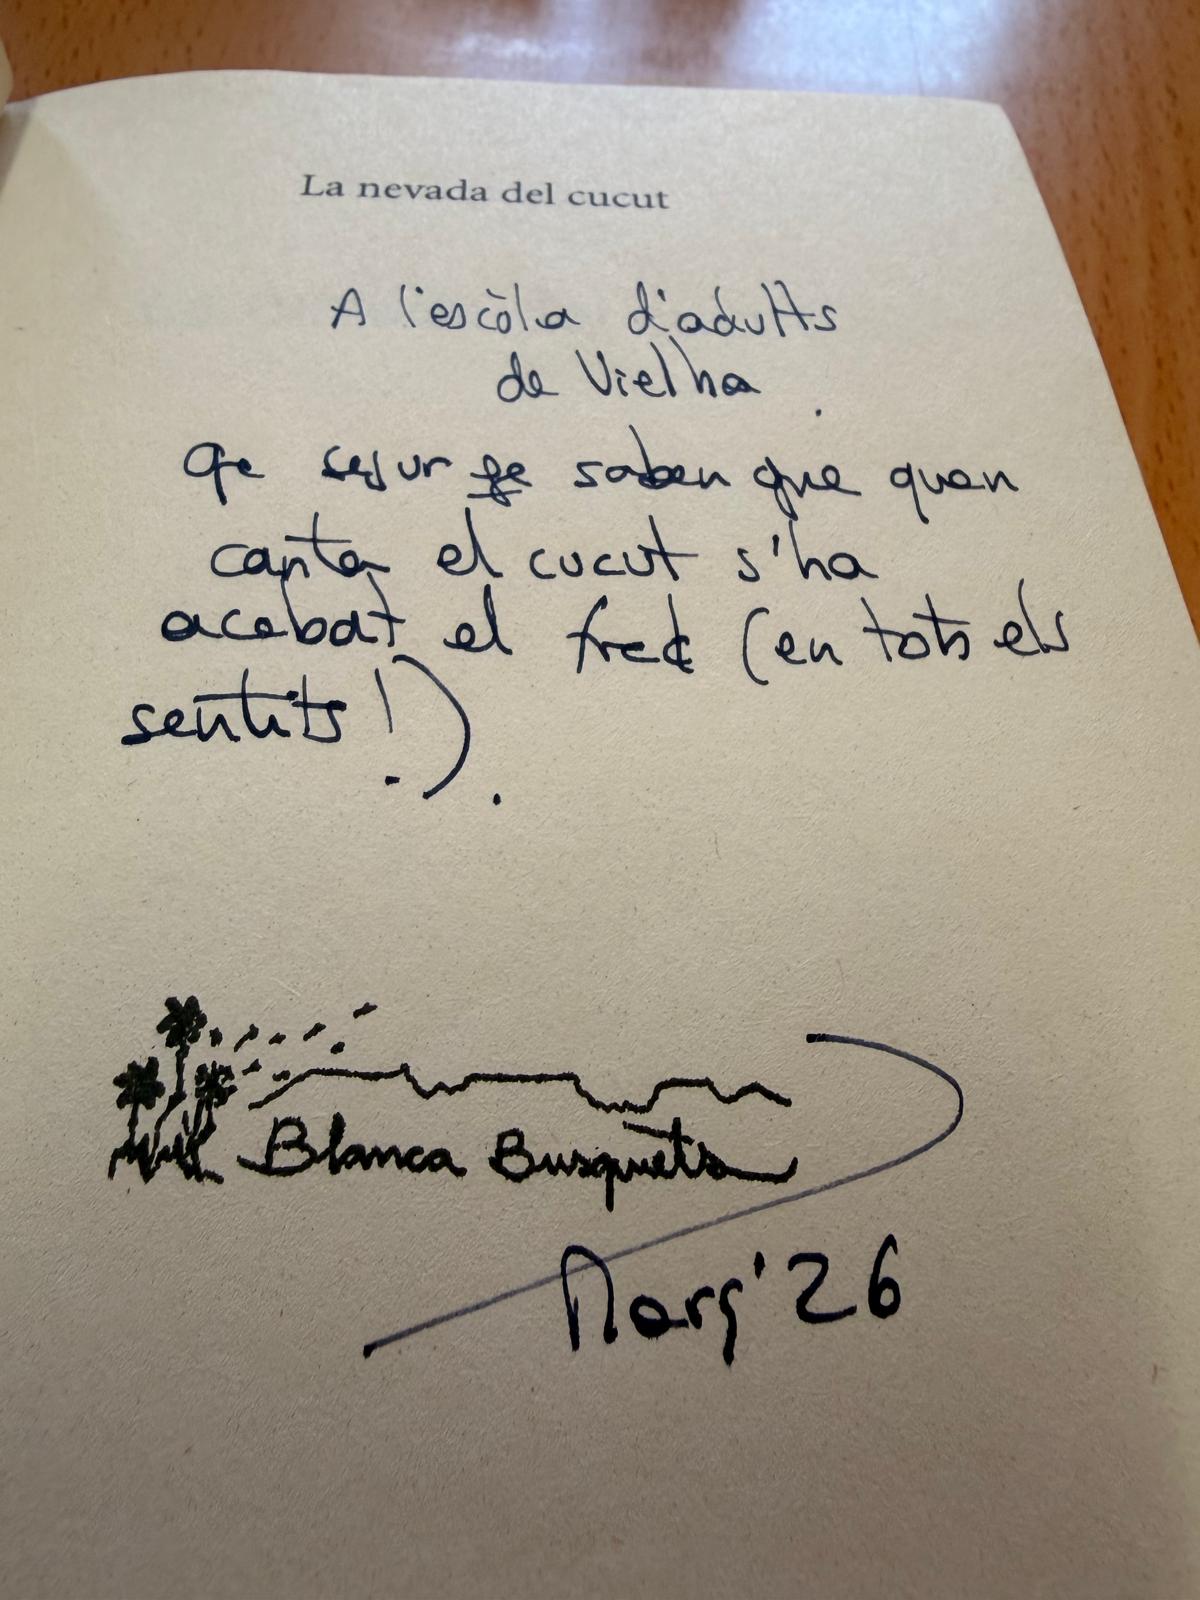 La nevada del cucut
A l'escòla d'adults
de Vielha.
que segur saben que quan
canta el cucut s'ha
acabat el fred (en tots els
sentits!).
Blanca Busquets
Març '26